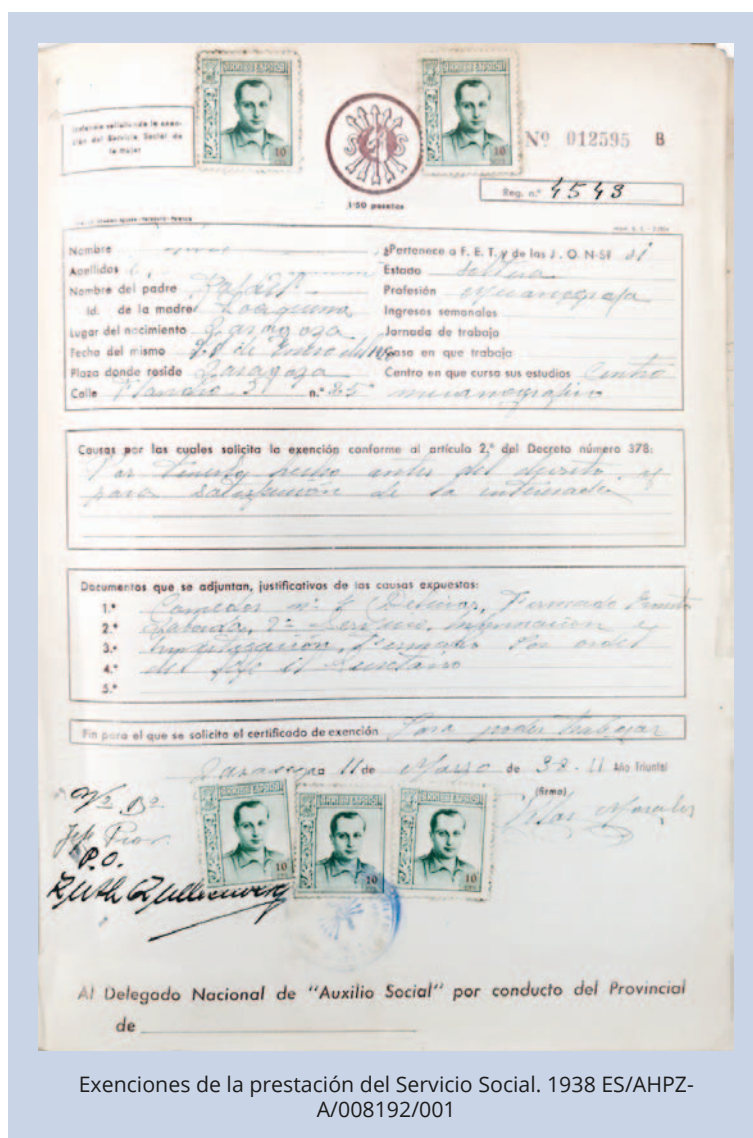 Instancia solicitando la exen-
ción del Servicio Social de
la mujer
ARRIBA ESPAÑA
10
ARRIBA ESPAÑA
10
Nº 012595 B
1·50 pesetas
Reg. n.º 4543
Nombre
Apellidos
Nombre del padre Rafael
Id. de la madre Joaquina
Lugar del nacimiento Zaragoza
Fecha del mismo 20 de Enero
Plaza donde reside Zaragoza
Calle n.º 25
¿Pertenece a F. E. T. y de las J. O. N-S? si
Estado Soltera
Profesión Mecanografa
Ingresos semanales
Jornada de trabajo
Casa en que trabaja
Centro en que cursa sus estudios Centro
mecanografico
Causas por las cuales solicita la exención conforme al artículo 2.º del Decreto número 378:
Por tenerlo hecho antes del decreto y
para satisfacción de la interesada
Documentos que se adjuntan, justificativos de las causas expuestas:
1.º Comedor nº Firmado
2.º 2º Servicio, información e
3.º Investigación, Firmado Por orden
4.º del Jefe el Secretario
5.º
Fin para el que se solicita el certificado de exención Para poder trabajar
Zaragoza 11 de Marzo de 38 - II Año Triunfal
(firma)
Pilar Morales
Vº Bº
P.O.
ARRIBA ESPAÑA
10
ARRIBA ESPAÑA
10
ARRIBA ESPAÑA
10
Al Delegado Nacional de "Auxilio Social" por conducto del Provincial
de
Exenciones de la prestación del Servicio Social. 1938 ES/AHPZ-
A/008192/001